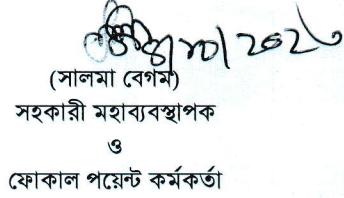 (সালমা বেগম)
সহকারী মহাব্যবস্থাপক
ও
ফোকাল পয়েন্ট কর্মকর্তা